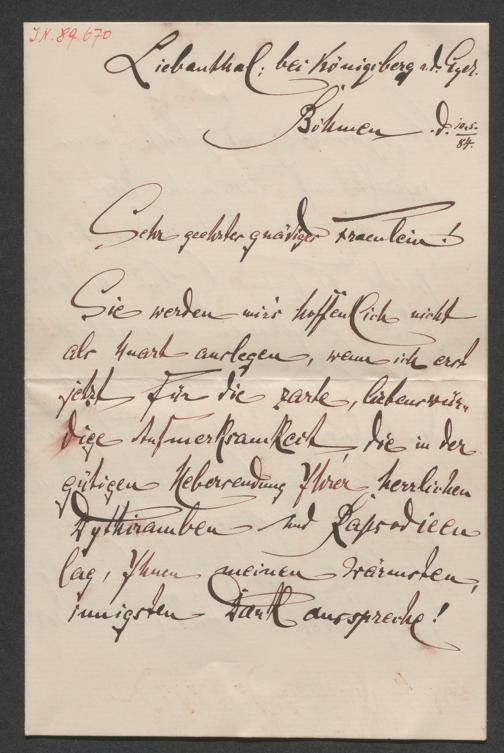 I.N. 89.670
Liebenthal, bei Königsberg a.d. Eger.
Böhmen d. 10.5.
84.
Sehr geehrtes gnädiges Fraeulein!
Sie werden mir's hoffentlich nicht
als Unart auslegen, wenn ich erst
jetzt für die zarte, liebenswür-
dige Aufmerksamkeit, die in der
gütigen Uebersendung Ihrer herrlichen
Dythiramben und Rapsodieen
lag, Ihnen meinen wärmsten,
innigsten Dank ausspreche!